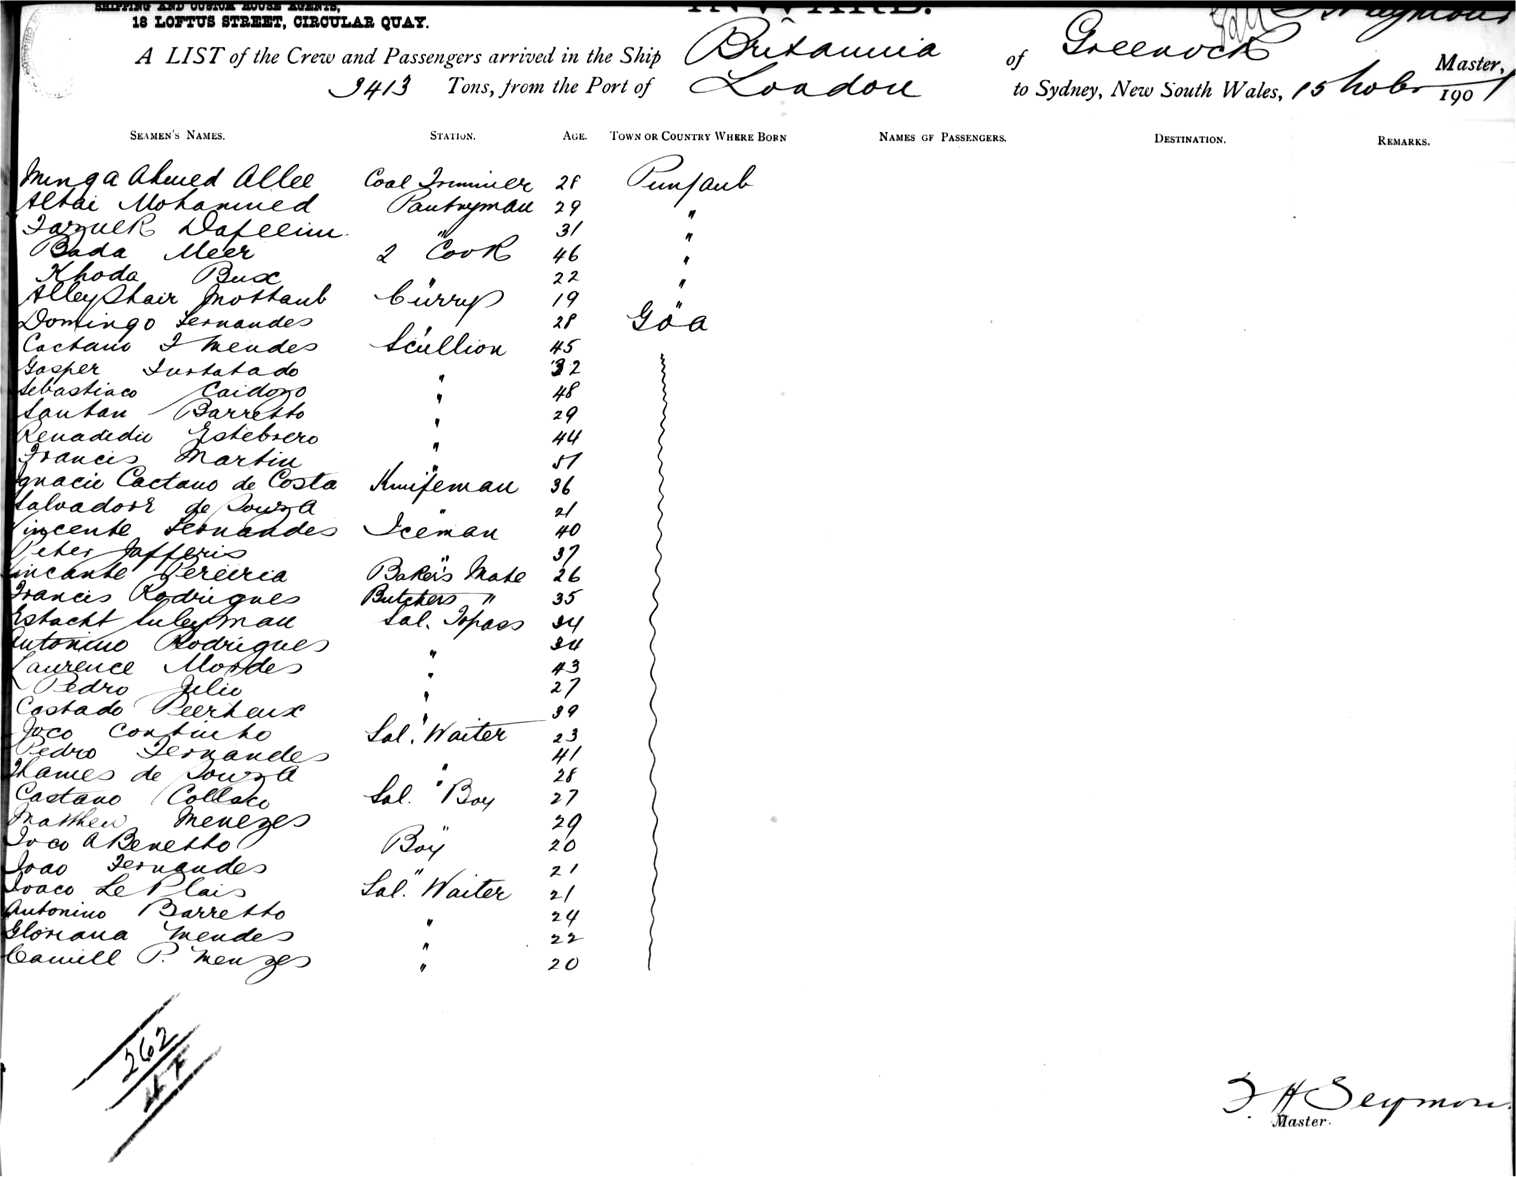 SHIPPING AND CUSTOM HOUSE AGENTS,
18 LOFTUS STREET, CIRCULAR QUAY.
INWARD.
A LIST of the Crew and Passengers arrived in the Ship Britannia of Greenock Seymour Master,
3413 Tons, from the Port of London to Sydney, New South Wales, 15 Nober 1901
SEAMEN'S NAMES. STATION. AGE. TOWN OR COUNTRY WHERE BORN NAMES OF PASSENGERS. DESTINATION. REMARKS.
Minga Ahmed Allee Coal Trimmer 28 Punjaub
Altai Mohammed Pantryman 29 "
31 "
Bada Meer 2 Cook 46 "
Khoda Bux " 22 "
Alley Shair Mottaub Curry 19 "
Domingo Fernandes " 28 Goa
Caetano F Mendes Scullion 45
Gasper Furtatado " 32
Sebastiaco Caidozo " 48
Santan Barretto " 29
Estebrero " 44
Francis Martin " 51
Ignacie Caetano de Costa Knifeman 36
Salvadore de Souza " 21
Vincente Fernandes Iceman 40
Peter Jafferis " 37
Vincante Pereiria Baker's Mate 26
Francis Rodrigues Butchers " 35
Suleyman Sal. Topass 34
Antonino Rodrigues " 34
Laurence Mordes " 43
Pedro Julio " 27
Costado " 39
Joco Contincho Sal. Waiter 23
Pedro Fernandes " 41
Thames de Souza " 28
Castano Collaco Sal. Boy 27
Matthew Menezes " 29
Joco A Benetto Boy 20
Joao Fernandes " 21
Joaco Le Plais Sal. Waiter 21
Antonino Barretto " 24
Gloriana Mendes " 22
Camill P. Menzes " 20
262
F H Seymour
Master.